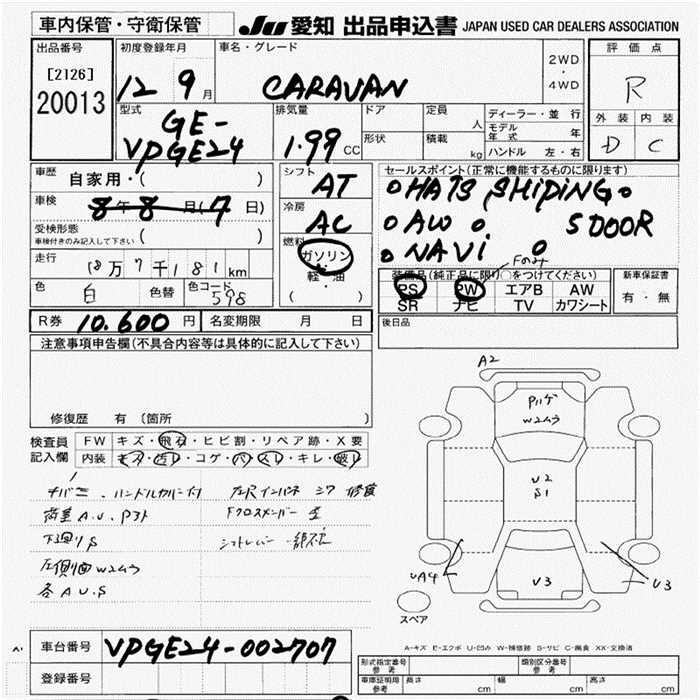 車内保管・守衛保管
JU 愛知 出品申込書 JAPAN USED CAR DEALERS ASSOCIATION
出品番号
[2126]
20013
初度登録年月
12 9月
車名・グレード
CARAVAN
2WD
・
4WD
評価点
R
外装 内装
D C
型式
GE-
VPGE24
排気量
1.99 CC
ドア
形状
定員 人
積載 kg
ディーラー・並行
モデル年式 年
ハンドル 左・右
車歴 自家用・( )
車検 8年8月(7日)
受検形態
車検付きのみ記入して下さい ( )
走行 18万7千181km
色 白 色替 色コード 598
シフト AT
冷房 AC
燃料
ガソリン
軽・油
( )
セールスポイント(正常に機能するものに限ります)
○HATS SHIPING○
○AW ○ 5DOOR
○NAVI ○
装備品(純正品に限り○をつけてください)
PS PW エアB AW
SR ナビ TV カワシート
新車保証書
有・無
R券 10.600円 名変期限 月 日
後日品
注意事項申告欄(不具合内容等は具体的に記入して下さい)
修復歴 有 (箇所
検査員
記入欄
FW キズ・飛石・ヒビ割・リペア跡・X要
内装 キズ・汚レ・コゲ・穴・スレ・キレ・破レ
荷室A.U.Pヌケ
下廻りS
左側面W2ムラ
各A.U.S
A2
W2ムラ
U2
S1
V3
UA4
U3
スペア
A-キズ E-エクボ U-凹み W-補修跡 S-サビ C-腐食 XX-交換済
A1
車台番号 VPGE24-002707
登録番号
形式指定番号
参考
類別区分番号
参考
車庫証明用
参考
長さ cm 幅 cm 高さ cm